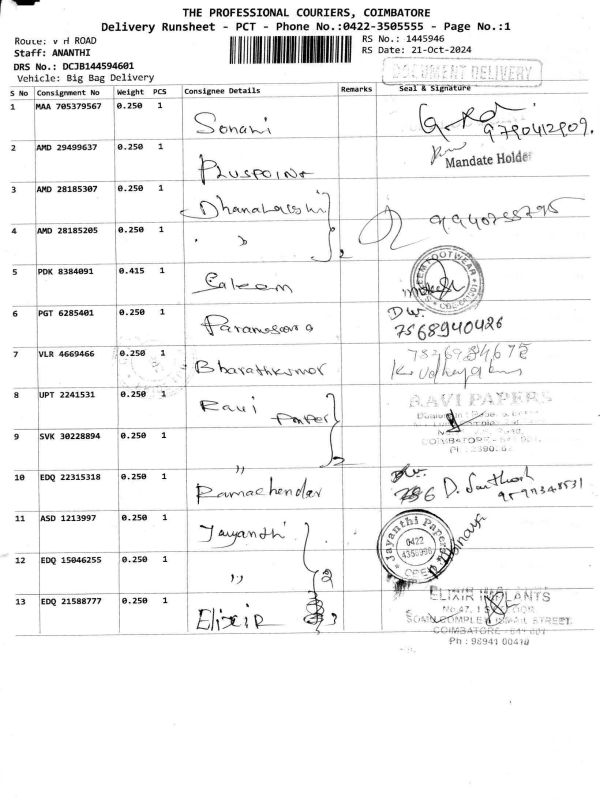 THE PROFESSIONAL COURIERS, COIMBATORE
Delivery Runsheet - PCT - Phone No.:0422-3505555 - Page No.:1
Route: V H ROAD
RS No.: 1445946
Staff: ANANTHI
RS Date: 21-Oct-2024
DRS No.: DCJB144594601
Vehicle: Big Bag Delivery
DOCUMENT DELIVERY
S No Consignment No Weight PCS Consignee Details Remarks Seal & Signature
1 MAA 705379567 0.250 1 9790412909.
2 AMD 29499637 0.250 1 Pluspoint Mandate Holder
3 AMD 28185307 0.250 1
4 AMD 28185205 0.250 1 2
5 PDK 8384091 0.415 1 Saleem
6 PGT 6285401 0.250 1 7568940426
7 VLR 4669466 0.250 1 Bharathkumar
8 UPT 2241531 0.250 1 Ravi Paper RAVI PAPERS
9 SVK 30228894 0.250 1 2 COIMBATORE
10 EDQ 22315318 0.250 1 Ramachendar D. Santhosh
11 ASD 1213997 0.250 1 Jayanthi Jayanthi Papers 0422
12 EDQ 15046255 0.250 1 " 2
13 EDQ 21588777 0.250 1 Elixir 3 ELIXIR IMPLANTS
COIMBATORE - 641 001
Ph : 98941 00410